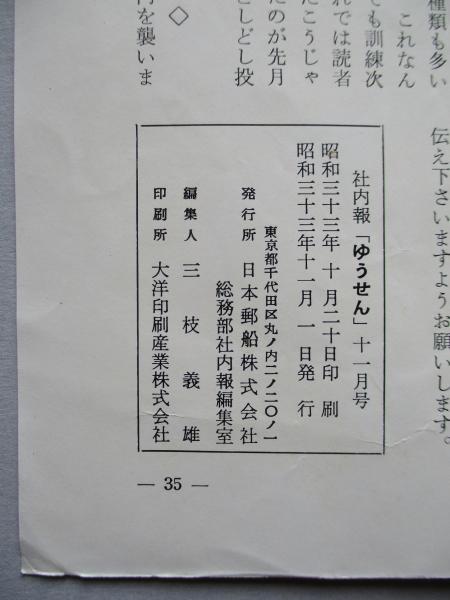 種類も多い
これなん
ても訓練次
れでは読者
たこうじゃ
たのが先月
どしどし投
◇
内を襲いま
伝え下さいますようお願いします。
社内報「ゆうせん」十一月号
昭和三十三年十月二十日印刷
昭和三十三年十一月一日発行
東京都千代田区丸ノ内二ノ二〇ノ一
発行所 日本郵船株式会社
総務部社内報編集室
編集人 三枝義雄
印刷所 大洋印刷産業株式会社
— 35 —